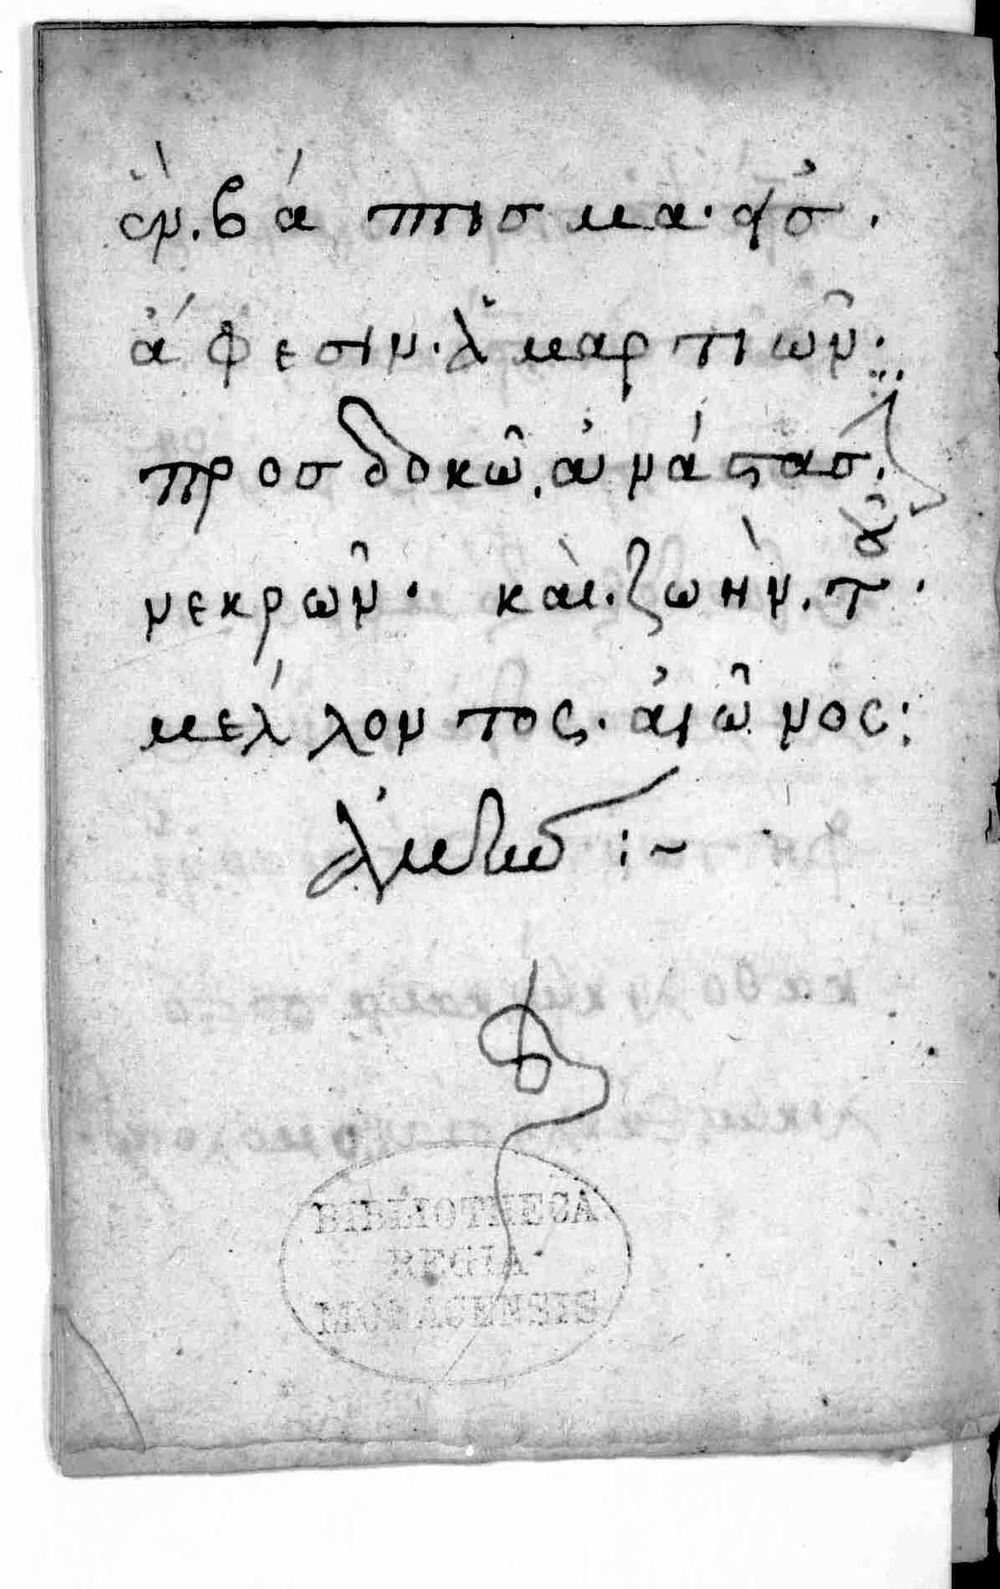 ἓν. βάπτισμα. εἰσ.
ἄφεσιν. ἁμαρτιῶν:
προσδοκῶ. ἀνάστασ.
νεκρῶν. καὶ. ζωὴν. τοῦ.
μέλλοντος. ἀιῶνος:
ἀμὴν :~
BIBLIOTHECA
REGIA
MONACENSIS